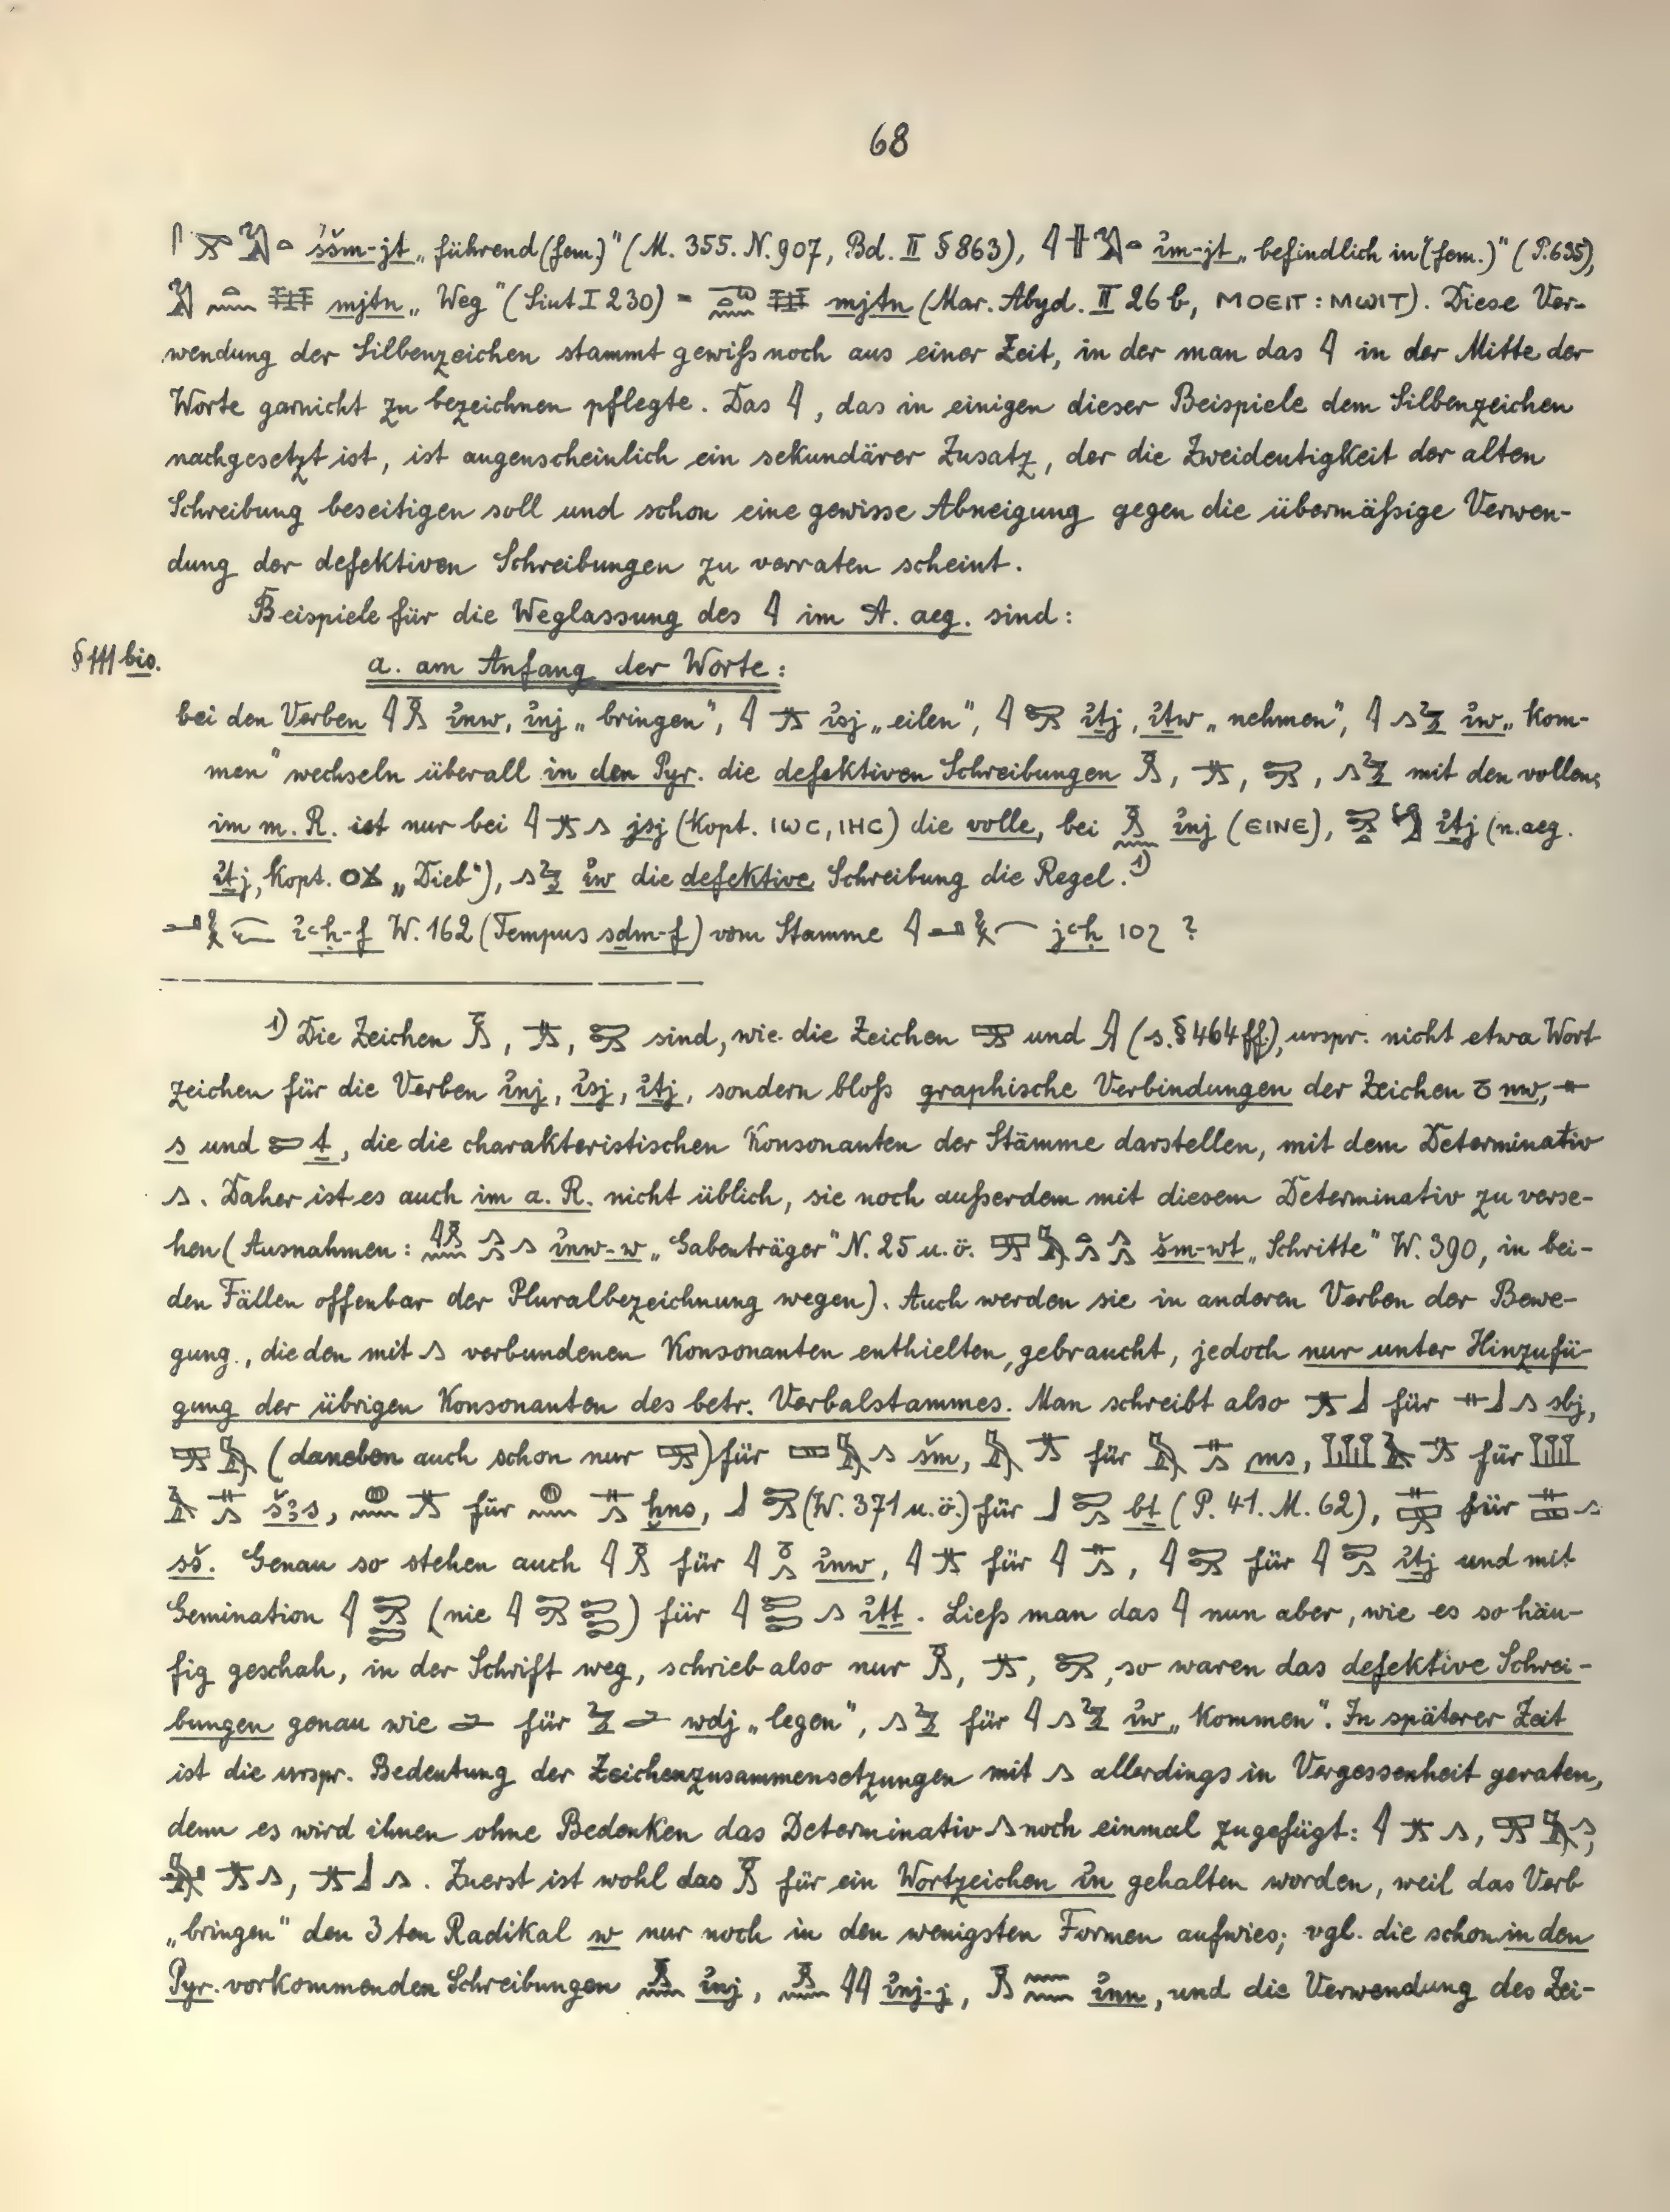 68
𓋴 𓈝 𓅓 𓏏 śšm-jt „führend (fem.)" (M. 355. N. 907, Bd. II § 863), 𓇋 𓏶 𓅓 𓏏 ı͗m-jt „befindlich in (fem.)" (P. 635),
mjtn „Weg" (Siut I 230) = mjtn (Mar. Abyd. II 26 b, ⲙⲟⲉⲓⲧ : ⲙⲱⲓⲧ). Diese Ver-
wendung der Silbenzeichen stammt gewiß noch aus einer Zeit, in der man das 𓇋 in der Mitte der
Worte garnicht zu bezeichnen pflegte. Das 𓇋, das in einigen dieser Beispiele dem Silbenzeichen
nachgesetzt ist, ist augenscheinlich ein sekundärer Zusatz, der die Zweideutigkeit der alten
Schreibung beseitigen soll und schon eine gewisse Abneigung gegen die übermäßige Verwen-
dung der defektiven Schreibungen zu verraten scheint.
Beispiele für die Weglassung des 𓇋 im A. aeg. sind:
§ 111 bis. a. am Anfang der Worte:
bei den Verben 𓇋𓏎 ı͗nw, ı͗nj „bringen", 𓇋 𓊃𓂻 ı͗sj „eilen", 𓇋 𓍿𓂻 ı͗ṯj, ı͗ṯw „nehmen", 𓇋 𓂻𓅱 ı͗w „kom-
men" wechseln überall in den Pyr. die defektiven Schreibungen 𓏎, 𓊃𓂻, 𓍿𓂻, 𓂻𓅱 mit den vollen;
im m. R. ist nur bei 𓇋 𓊃𓂻 𓂻 jsj (Kopt. ⲓⲱⲥ, ⲓⲏⲥ) die volle, bei 𓏎𓈖 ı͗nj (ⲉⲓⲛⲉ), ı͗ṯj (n.aeg.
ı͗ṯj, Kopt. ⲟϫ „Dieb"), 𓂻𓅱 ı͗w die defektive Schreibung die Regel. 1)
ı͗ꜥḥ-f W. 162 (Tempus sḏm-f) vom Stamme jꜥḥ ?
1) Die Zeichen 𓏎, 𓊃𓂻, 𓍿𓂻 sind, wie die Zeichen 𓈝 und (s. § 464 ff.), urspr. nicht etwa Wort
zeichen für die Verben ı͗nj, ı͗sj, ı͗ṯj, sondern bloß graphische Verbindungen der Zeichen 𓏌 nw, 𓊃
s und 𓍿 ṯ, die die charakteristischen Konsonanten der Stämme darstellen, mit dem Determinativ
𓂻. Daher ist es auch im a. R. nicht üblich, sie noch außerdem mit diesem Determinativ zu verse-
hen (Ausnahmen: 𓇋𓏎𓈖 𓂻𓂻𓂻 ı͗nw-w „Gabenträger" N. 25 u. ö. 𓈝𓅓𓏏𓂻𓂻𓂻 šm-wt „Schritte" W. 390, in bei-
den Fällen offenbar der Pluralbezeichnung wegen). Auch werden sie in anderen Verben der Bewe-
gung, die den mit 𓂻 verbundenen Konsonanten enthielten, gebraucht, jedoch nur unter Hinzufü-
gung der übrigen Konsonanten des betr. Verbalstammes. Man schreibt also 𓊃𓂻𓃀 für 𓊃𓃀𓂻 sbj,
𓈝𓅓 (daneben auch schon nur 𓈝) für 𓈙𓅓𓂻 šm, 𓅓 𓊃𓂻 für 𓅓 𓊃𓂻 ms, 𓆷𓄿 𓊃𓂻 für 𓆷
𓄿 𓊃𓂻 šꜣs, 𓐍𓈖 𓊃𓂻 für 𓐍𓈖 𓊃𓂻 ḫns, 𓃀 𓍿𓂻 (W. 371 u. ö.) für 𓃀 𓍿𓂻 bṯ (P. 41. M. 62), 𓊃𓈝 für 𓊃𓈙𓂻
sš. Genau so stehen auch 𓇋𓏎 für 𓇋𓏌𓂻 ı͗nw, 𓇋 𓊃𓂻 für 𓇋 𓊃𓂻, 𓇋 𓍿𓂻 für 𓇋 𓍿𓂻 ı͗ṯj und mit
Gemination 𓇋 𓍿𓂻𓍿 (nie 𓇋 𓍿𓂻 𓍿𓍿) für 𓇋 𓍿𓍿 𓂻 ı͗ṯṯ. Ließ man das 𓇋 nun aber, wie es so häu-
fig geschah, in der Schrift weg, schrieb also nur 𓏎, 𓊃𓂻, 𓍿𓂻, so waren das defektive Schrei-
bungen genau wie 𓂧 für 𓅱𓂧 wdj „legen", 𓂻𓅱 für 𓇋𓂻𓅱 ı͗w „kommen". In späterer Zeit
ist die urspr. Bedeutung der Zeichenzusammensetzungen mit 𓂻 allerdings in Vergessenheit geraten,
denn es wird ihnen ohne Bedenken das Determinativ 𓂻 noch einmal zugefügt: 𓇋 𓊃𓂻 𓂻, 𓈝𓅓𓂻,
𓅓 𓊃𓂻 𓂻, 𓊃𓂻𓃀𓂻. Zuerst ist wohl das 𓏎 für ein Wortzeichen ı͗n gehalten worden, weil das Verb
„bringen" den 3ten Radikal w nur noch in den wenigsten Formen aufwies; vgl. die schon in den
Pyr. vorkommenden Schreibungen 𓏎𓈖 ı͗nj, 𓏎𓈖𓇋𓇋 ı͗nj-j, 𓏎𓈖𓈖 ı͗nn, und die Verwendung des Zei-